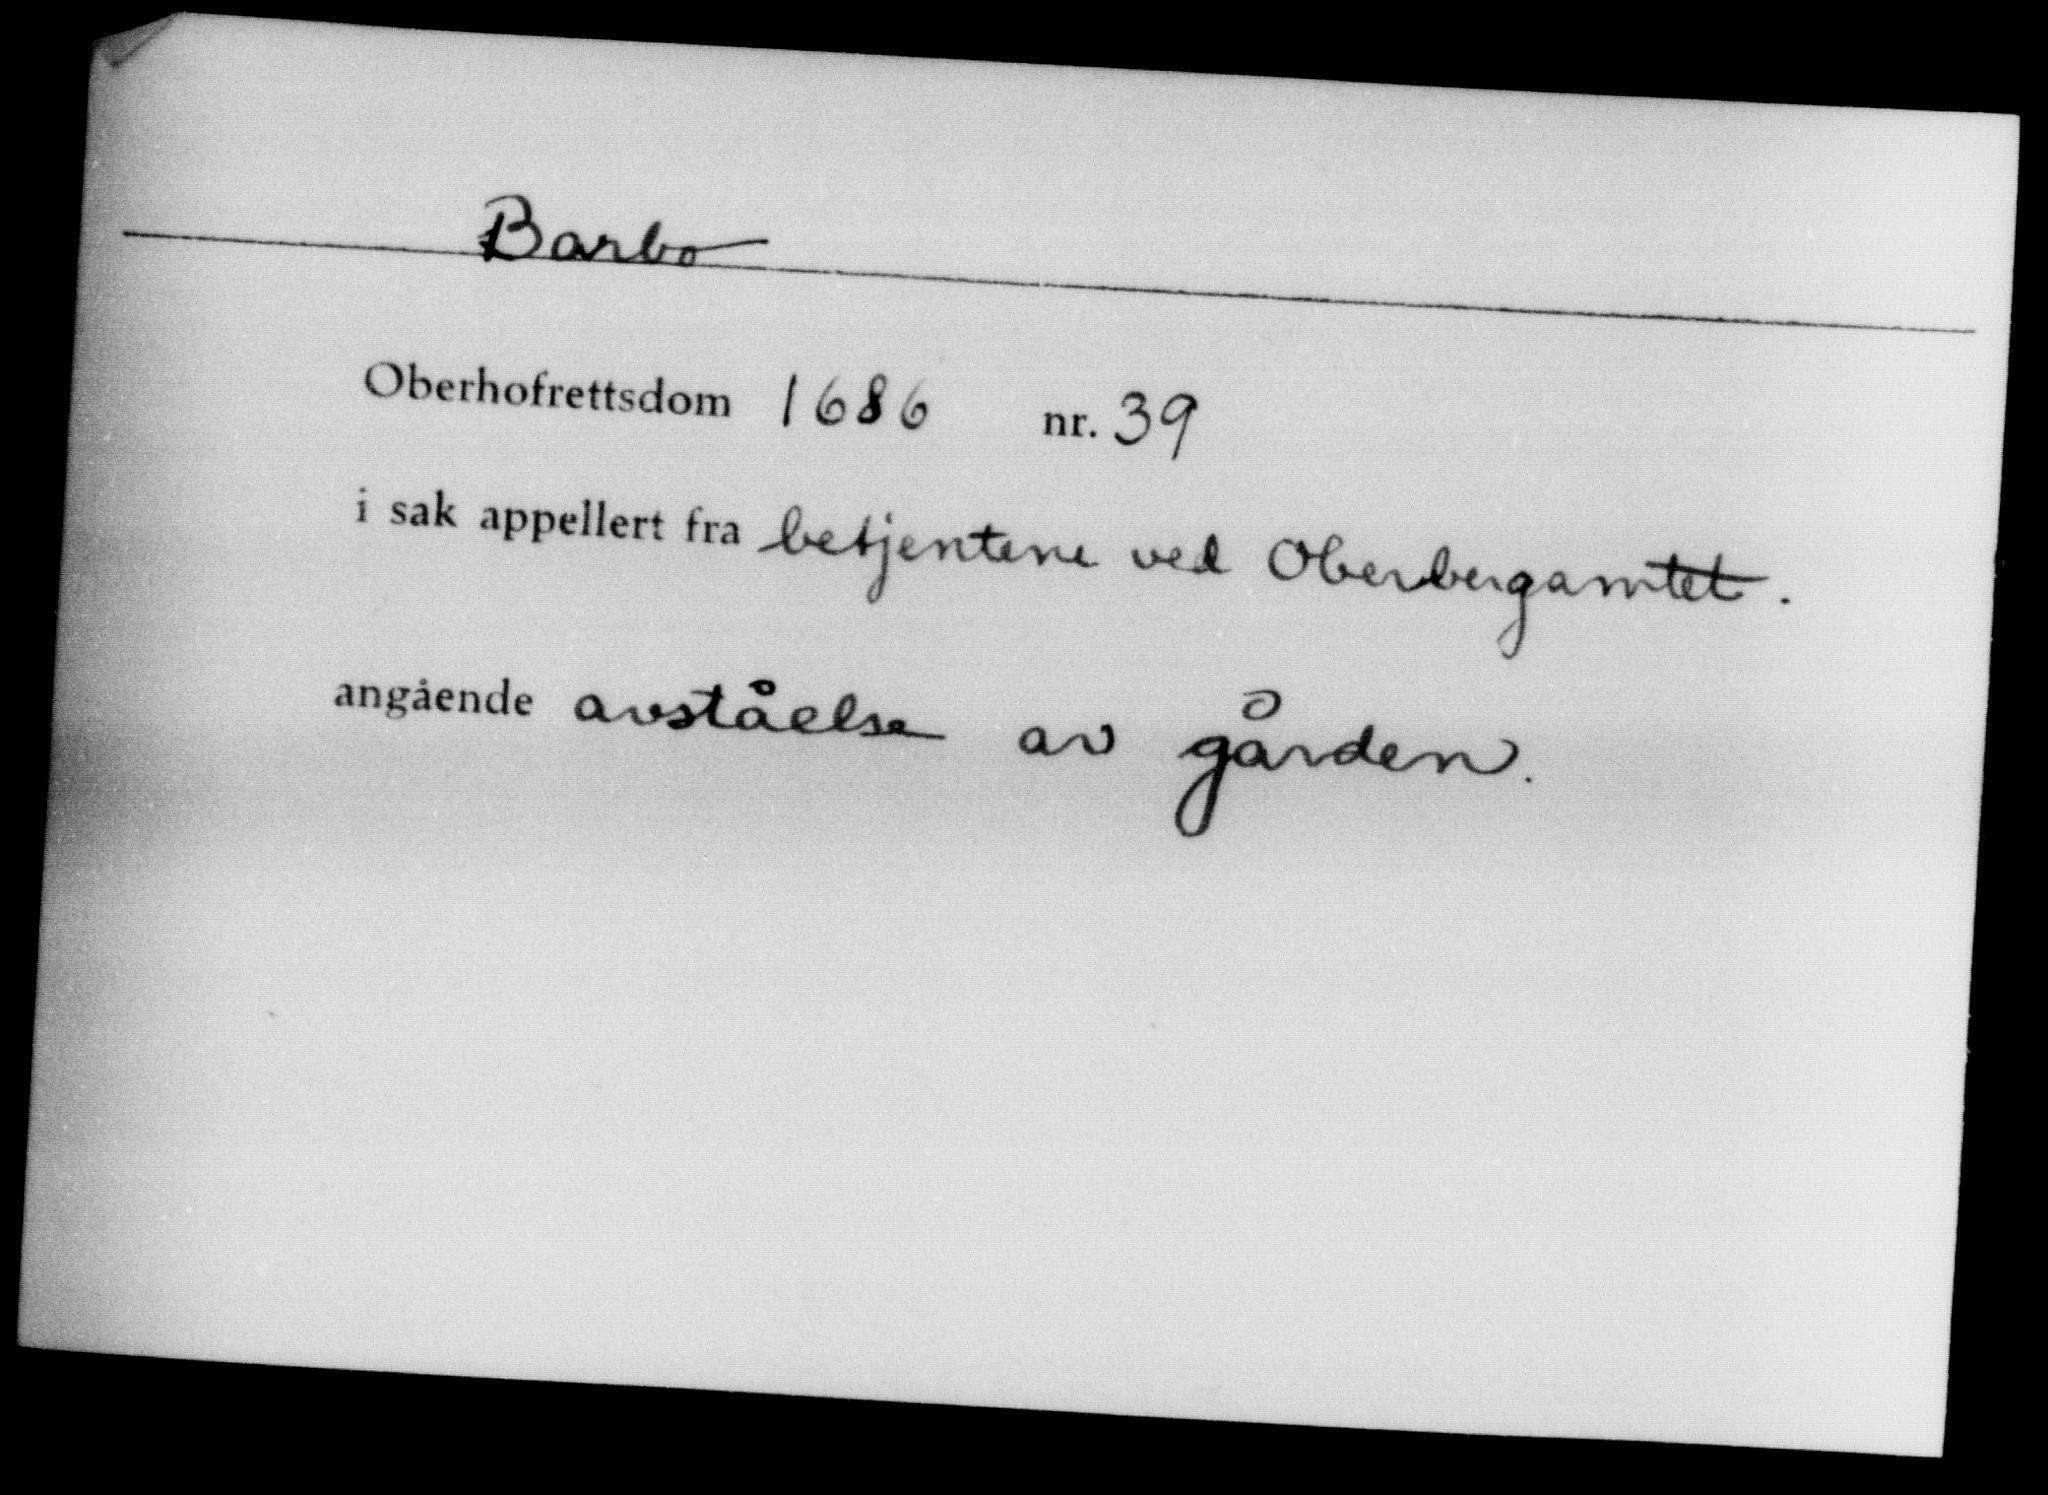 Barbo
Oberhofrettsdom 1686 nr. 39
i sak appellert fra betjentene ved Oberbergamtet.
angående avståelse av gården.